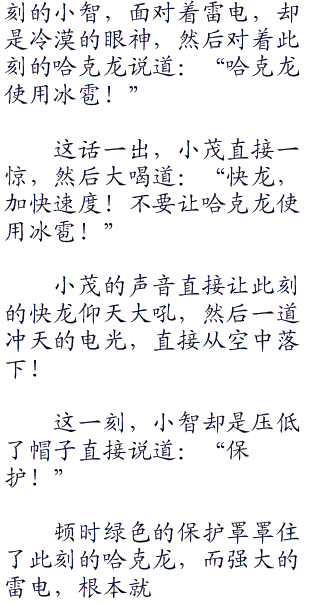 刻的小智，面对着雷电，却
是冷漠的眼神，然后对着此
刻的哈克龙说道：“哈克龙
使用冰雹！”
这话一出，小茂直接一
惊，然后大喝道：“快龙，
加快速度！不要让哈克龙使
用冰雹！”
小茂的声音直接让此刻
的快龙仰天大吼，然后一道
冲天的电光，直接从空中落
下！
这一刻，小智却是压低
了帽子直接说道：“保
护！”
顿时绿色的保护罩罩住
了此刻的哈克龙，而强大的
雷电，根本就